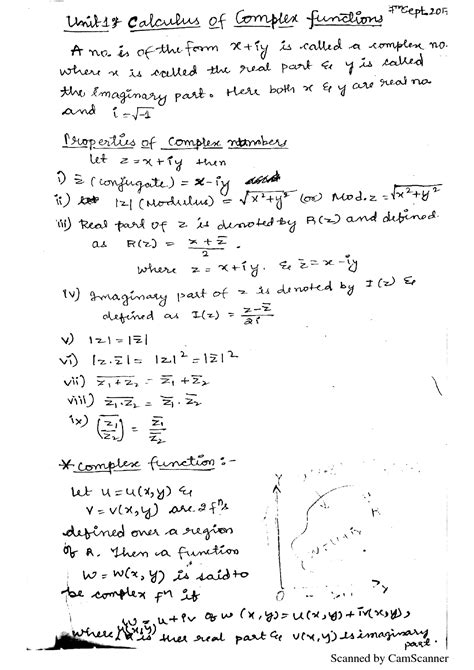 Unit 1: Calculus of Complex functions
A no. is of the form x+iy is called a complex no.
where x is called the real part & y is called
the imaginary part. Here both x & y are real no
and i=√-1
Properties of complex numbers
let z=x+iy then
i) z̅ (conjugate) = x-iy
ii) |z| (Modulus) = √x²+y² (or) Mod.z = √x²+y²
iii) Real part of z is denoted by R(z) and defined
as R(z) = z+z̅/2.
where z=x+iy. & z̅=x-iy
iv) Imaginary part of z is denoted by I(z) &
defined as I(z) = z-z̅/2i
v) |z|=|z̅|
vi) |z.z̅| = |z|² = |z̅|²
vii) \overline{z₁+z₂} = z̅₁+z̅₂
viii) \overline{z₁.z₂} = z̅₁.z̅₂
ix) \overline{(z₁/z₂)} = z̅₁/z̅₂
* complex function :-
let u=u(x,y) &
v=v(x,y) are 2 fⁿs
defined over a region
of R. Then a function
w=w(x,y) is said to
be complex fⁿ if
w=u+iv or w(x,y)=u(x,y)+iv(x,y),
where u(x,y) is the real part & v(x,y) is imaginary
part.
Y
R
w=u+iv
O
x
Scanned by CamScanner